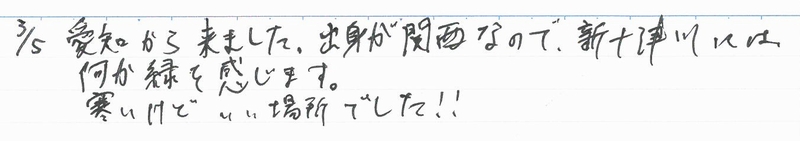 3/5 愛知から来ました。出身が関西なので、新十津川には
何か縁を感じます。
寒いけどいい場所でした!!